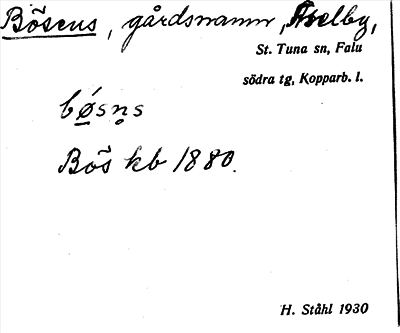 Bösens, gårdsnamn, Åselby,
St. Tuna sn, Falu
södra tg, Kopparb. l.
bǿ̲sn̥s
Bös kb 1880.
H. Ståhl 1930